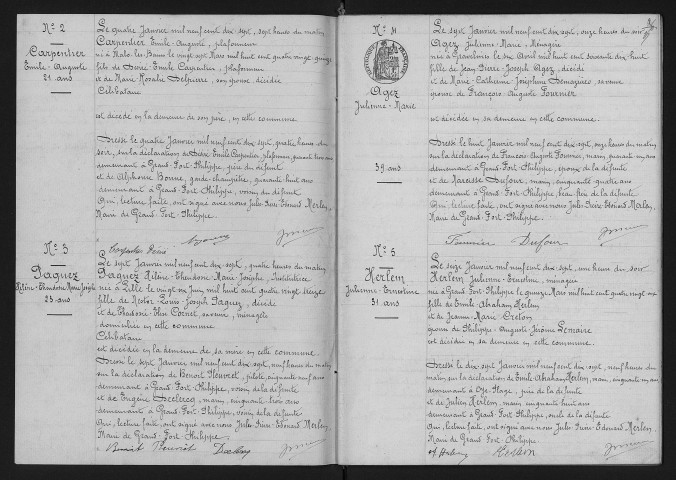 No 2
Carpentier
Emile-Auguste
21 ans
Le quatre Janvier mil neuf cent dix sept, sept heures du matin
Carpentier Emile-Auguste, plafonneur
né à Malo-les-Bains le vingt sept Mars mil huit cent quatre vingt quinze
fils de Désiré Emile Carpentier, plafonneur
et de Marie Rosalie Delpierre, son épouse décédée
Célibataire
est décédé en la demeure de son père, en cette commune
Dressé le quatre Janvier mil neuf cent dix sept, quatre heures du
soir, sur la déclaration de Désiré Emile Carpentier, plafonneur, quarante
demeurant à Grand-Fort-Philippe, père du défunt
et de Alphonse Bonne, garde-champêtre, quarante huit ans
demeurant à Grand-Fort-Philippe, voisin du défunt
Qui, lecture faite, ont signé avec nous Jules-Isère-Edouard Merlen,
Maire de Grand-Fort-Philippe.
No 3
Paquez
Hélène-Théudosie Marie Josèphe
23 ans
Le sept Janvier mil neuf cent dix-sept, quatre heures du matin
Paquez Hélène-Théudosie Marie-Josèphe, Institutrice
née à Lille le vingt un Juin mil huit cent quatre vingt treize
fille de Nestor Louis-Joseph Paquez, décédé
et de Théudosie Cornet, sa veuve, ménagère
domiciliée en cette commune
Célibataire
est décédée en la demeure de sa mère en cette commune
Dressé le sept Janvier mil neuf cent dix-sept, neuf heures du matin
sur la déclaration de Benoit Fleuriet, pilote, cinquante neuf ans
demeurant à Grand-Fort-Philippe, voisin de la défunte
et de Eugène Declercq, marin, cinquante trois ans
demeurant à Grand-Fort-Philippe, voisin de la défunte
Qui, lecture faite, ont signé avec nous Jules-Isère-Edouard Merlen,
Maire de Grand-Fort-Philippe.
No 4
Agez
Julienne-Marie
39 ans
Le sept Janvier mil neuf cent dix-sept, onze heures du soir
Agez Julienne-Marie, Ménagère
née à Gravelines le six Avril mil huit cent soixante dix huit
fille de Jean Pierre-Joseph Agez, décédé
et de Marie-Catherine Joséphine Demazières, sa veuve
épouse de François-Auguste Fournier
est décédée en sa demeure en cette commune.
Dressé le huit Janvier mil neuf cent dix-sept, onze heures du matin
sur la déclaration de François Auguste Fournier, marin, quarante un ans
demeurant à Grand-Fort-Philippe, époux de la défunte
et de Narcisse Dufour, marin, cinquante-quatre ans
demeurant à Grand-Fort-Philippe, beau-frère de la défunte
Qui, lecture faite, ont signé avec nous Jules-Isère-Edouard Merlen,
Maire de Grand-Fort-Philippe.
Fournier Dufour
No 5
Merlen
Julienne-Ernestine
31 ans
Le seize Janvier mil neuf cent dix-sept, une heure du soir
Merlen Julienne-Ernestine, ménagère
née à Grand-Fort-Philippe le quinze Mai mil huit cent quatre vingt
fille de Emile-Abraham Merlen
et de Jeanne-Marie Creton
épouse de Philippe-Auguste Jérôme Lemaire
est décédée en sa demeure en cette commune.
Dressé le dix sept Janvier mil neuf cent dix-sept, neuf heures du matin
sur la déclaration de Emile-Abraham Merlen, marin, cinquante ans
demeurant à Oye-Plage, père de la défunte
et de Julien Merlen, marin, cinquante huit ans
demeurant à Grand-Fort-Philippe, oncle de la défunte
Qui, lecture faite, ont signé avec nous Jules-Isère-Edouard Merlen,
Maire de Grand-Fort-Philippe.